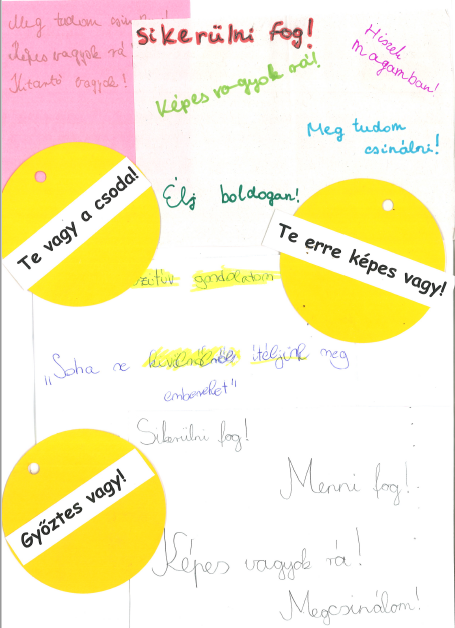 Meg tudom
Képes vagyok rá!
Kitartó vagyok!
Sikerülni fog!
Hiszek
magamban!
Képes vagyok rá!
Meg tudom
csinálni!
Te vagy a csoda!
Élj boldogan!
Te erre képes vagy!
gondolatom
„Soha ne ítéljünk meg
embereket"
Sikerülni fog!
Menni fog!
Győztes vagy!
Képes vagyok rá!
Megcsinálom!